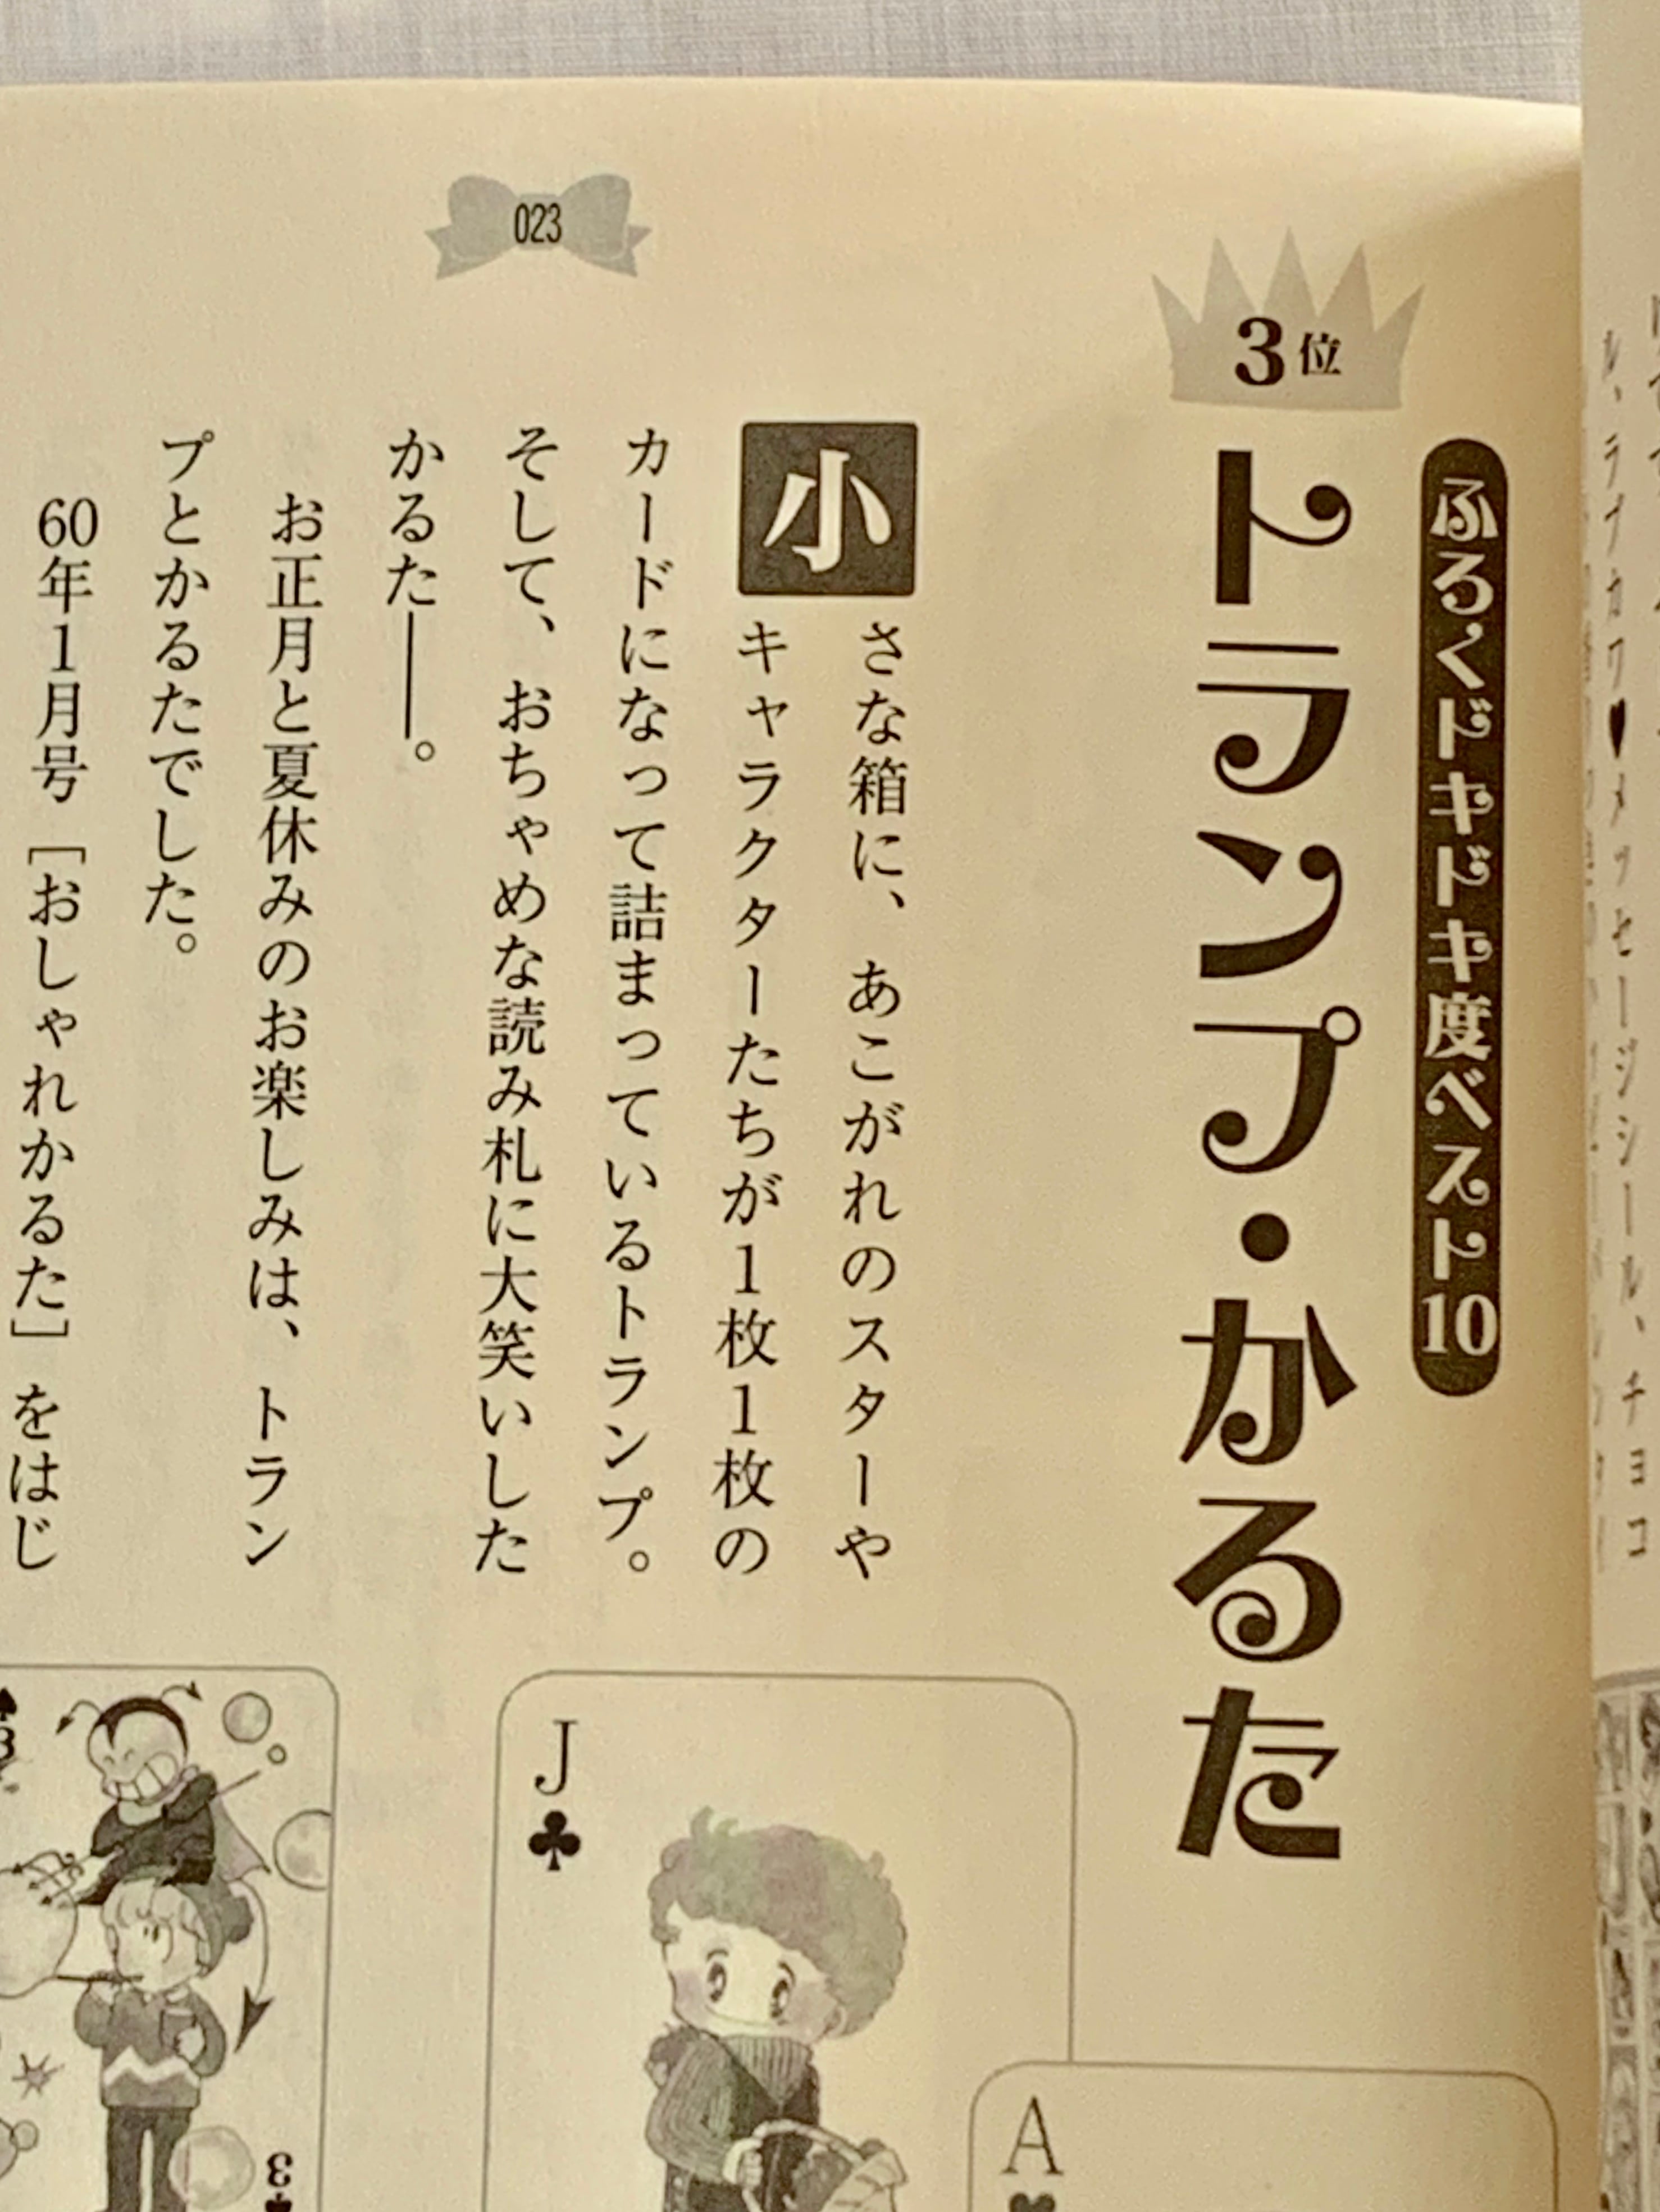 023
3位
ふるくドキドキ度ベスト10
トランプ・かるた
小さな箱に、あこがれのスターや
キャラクターたちが1枚1枚の
カードになって詰まっているトランプ。
そして、おちゃめな読み札に大笑いした
かるた――。
お正月と夏休みのお楽しみは、トラン
プとかるたでした。
60年1月号［おしゃれかるた］をはじ
J
A
3
3
ル、ラブカワ♥メッセージシール、チョコ